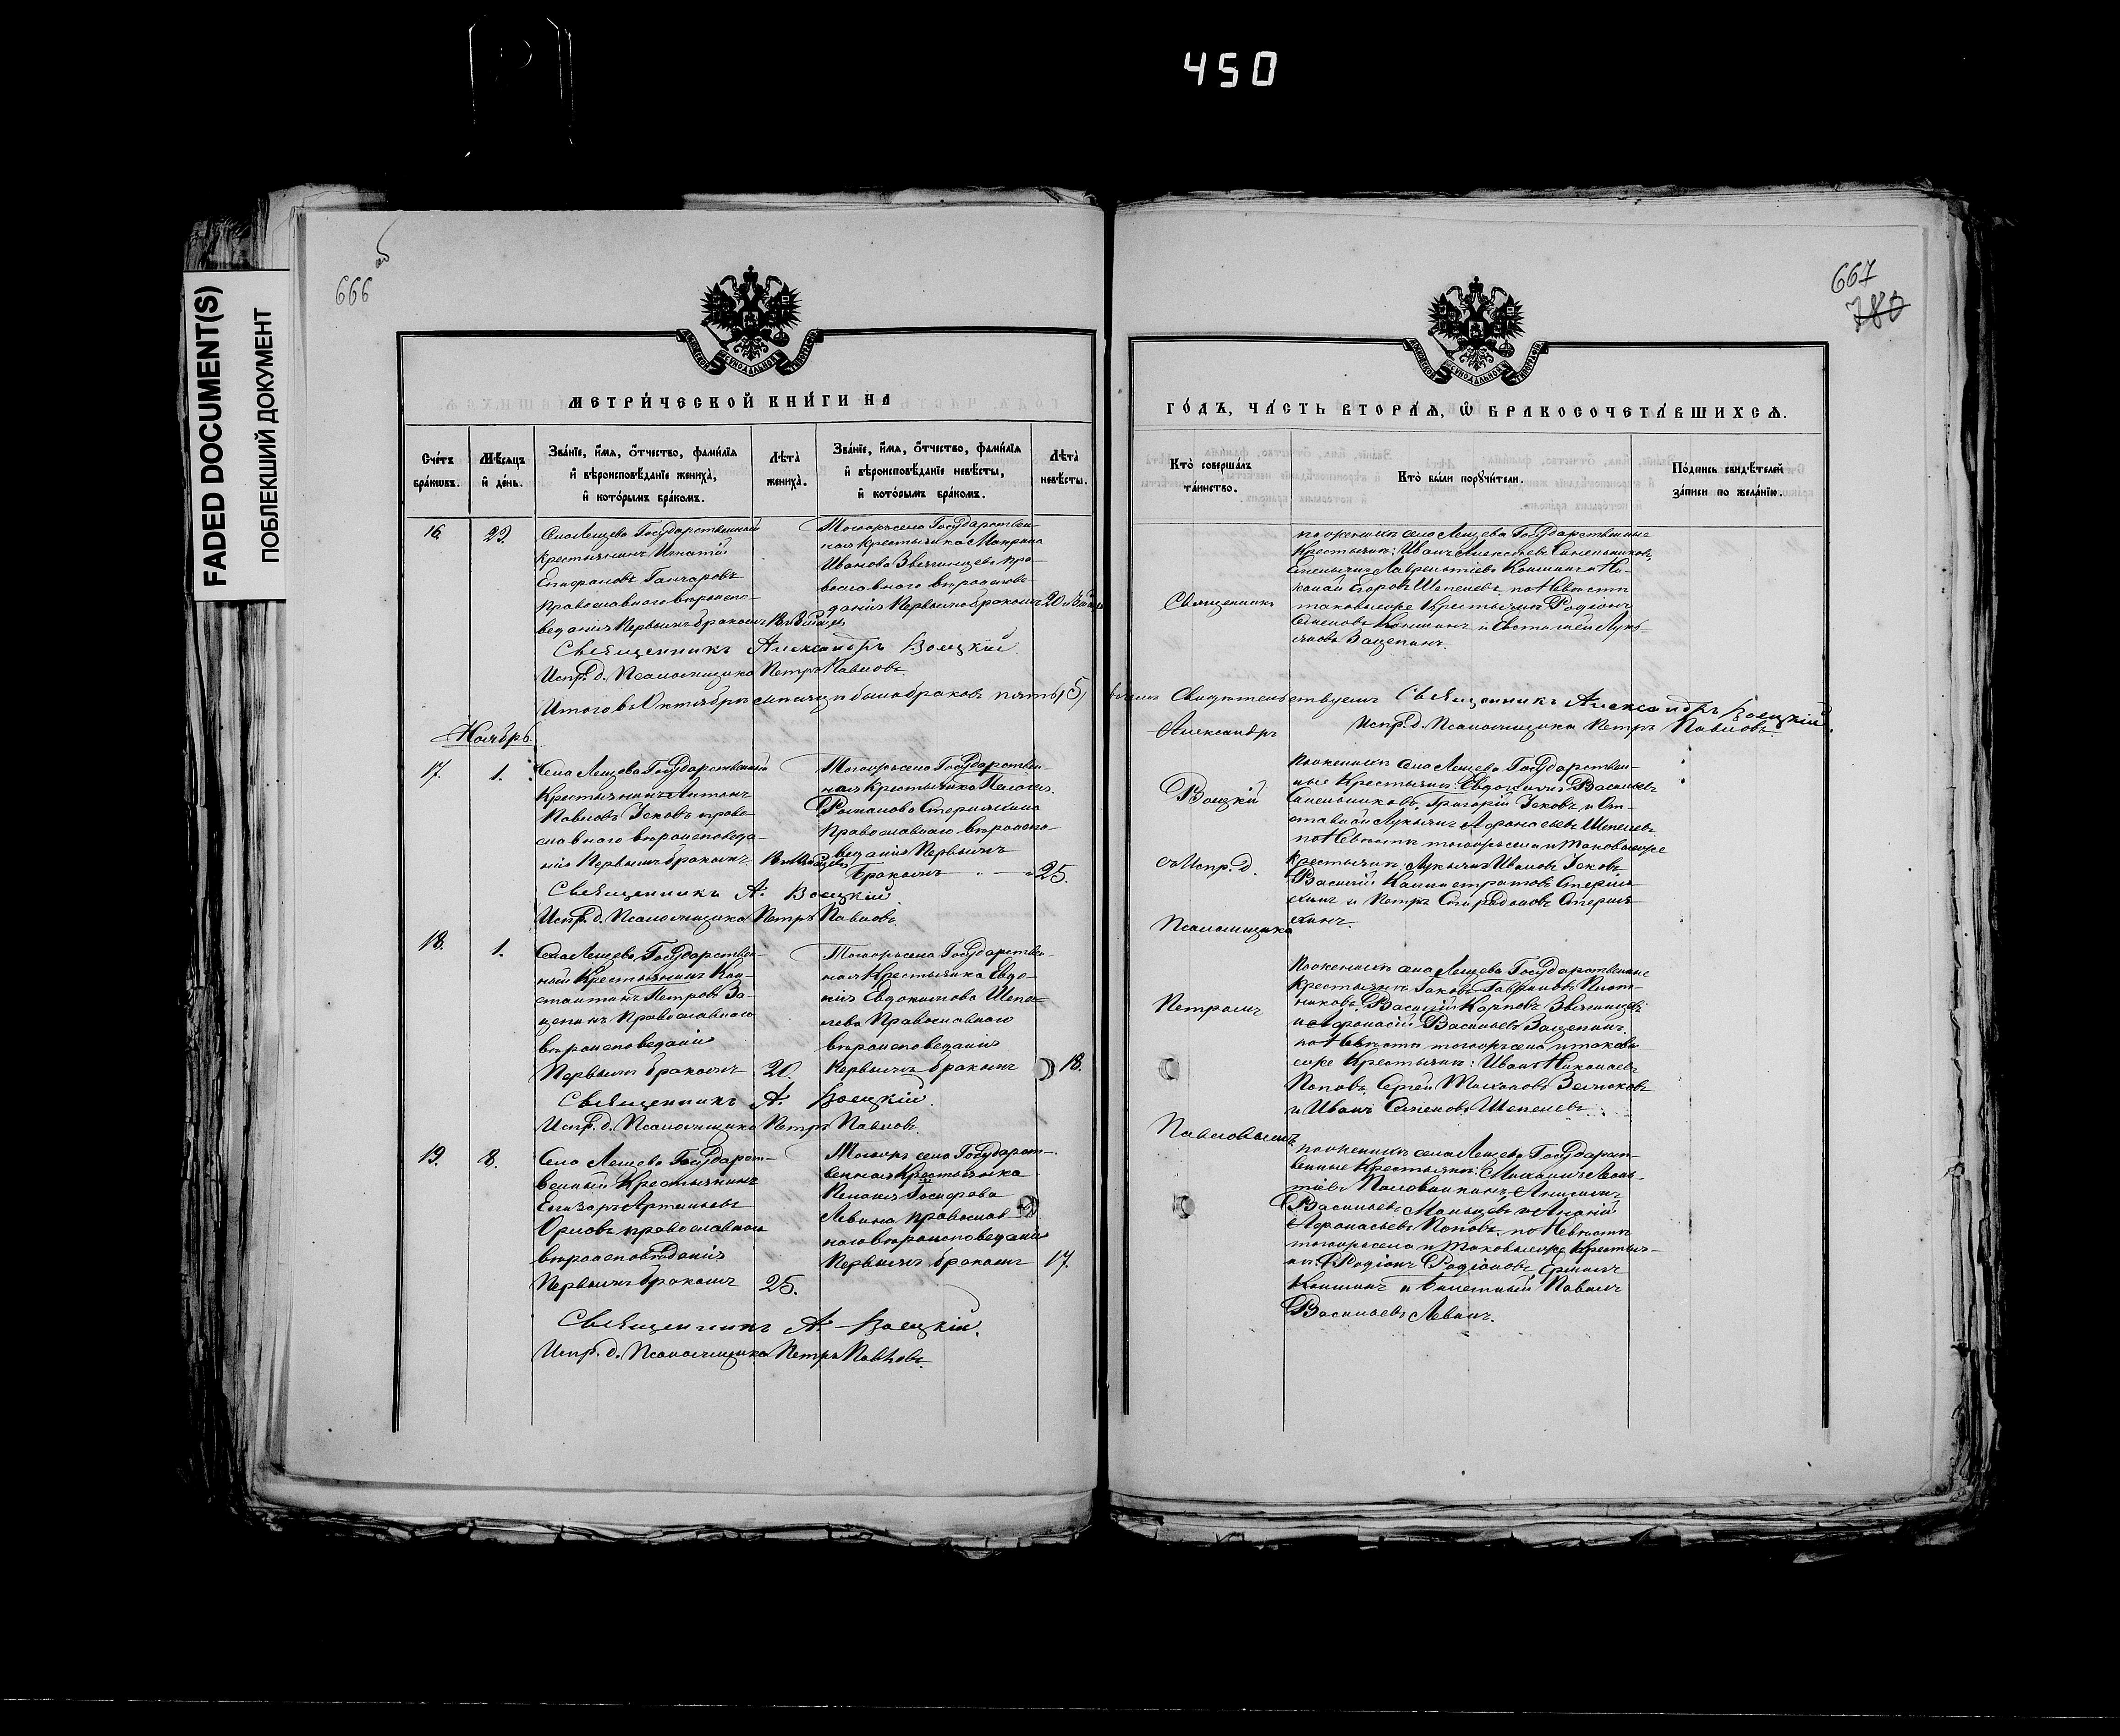 450
FADED DOCUMENT(S)
ПОБЛЕКШИЙ ДОКУМЕНТ
666 об
667
780
МОСКОВСКОЙ СѴНОДАЛЬНОЙ ТИПОГРАФІИ
МЕТРИ́ЧЕСКОЙ КНИ́ГИ НА
Сче́тъ бра́кѡвъ.
Мѣ́сяцъ и҆ де́нь.
Зва́нїе, и҆́мя, ѻ҆́тчество, фами́лїя и҆ вѣроисповѣ́данїе жениха̀, и҆ кото́рымъ бра́комъ.
Лѣ́та жениха̀.
Зва́нїе, и҆́мя, ѻ҆́тчество, фами́лїя и҆ вѣроисповѣ́данїе невѣ́сты, и҆ кото́рымъ бра́комъ.
Лѣ́та невѣ́сты.
16.
23.
Села Лещева Государственный
Крестьянинъ Игнатій
Епифановъ Гончаровъ
Православнаго вѣроиспо-
веданія Первымъ бракомъ
Тогожъ села Государствен-
ная Крестьянка
Иванова Звягинцева пра-
вославнаго вѣроиспове-
данія Первымъ бракомъ
Священникъ Александръ Воецкій
Испр. д. Псаломщика Петръ Павловъ.
Итого въ Октябрѣ месяцѣ было браковъ пять (5)
Ноябрь
17.
1.
Села Лещева Государственный
Крестьянинъ Антонъ
Павловъ Усковъ право-
славнаго вѣроисповеда-
нія Первымъ бракомъ
Тогожъ села Государствен-
ная Крестьянка Пелагея
Романова
Православнаго вѣроиспо-
веданія Первымъ
бракомъ
25.
Священникъ А. Воецкій
Испр. д. Псаломщика Петръ Павловъ.
18.
1.
Села Лещева Государствен-
ный Крестьянинъ Кон-
стантинъ Петровъ За-
щепинъ Православнаго
вѣроисповеданія
Первымъ бракомъ
20.
Тогожъ села Государствен-
ная Крестьянка Евдо-
кія Евдокимова Шепе-
лева Православнаго
вѣроисповеданія
Первымъ бракомъ
18.
Священникъ А. Воецкій.
Испр. д. Псаломщика Петръ Павлов.
19.
8.
Села Лещева Государст-
венный Крестьянинъ
Елизаръ Артемьевъ
Орловъ православнаго
вѣроисповѣданія
Первымъ бракомъ
25.
Тогожъ села Государст-
венная Крестьянка
Пелагея Іосифова
Левина православ-
наго вѣроисповеданія
Первымъ бракомъ
17.
Священникъ А. Воецкій.
Испр. д. Псаломщика Петръ Павловъ.
МОСКОВСКОЙ СѴНОДАЛЬНОЙ ТИПОГРАФІИ
ГО́ДЪ, ЧА́СТЬ ВТОРА́Я, Ѡ҆ БРАКОСОЧЕТА́ВШИХСЯ.
Кто̀ соверша́лъ та́инство.
Кто̀ бы́ли порꙋчи́тели.
По́дпись свидѣ́телей за́писи по жела́нїю.
Священникъ
Александръ
Воецкій
съ Испр. д.
Псаломщика
Петромъ
Павловымъ
по женихѣ села Лещева Государственные
Крестьяне: Иванъ Алексѣевъ Синельниковъ,
Емельянъ Лаврентіевъ Коншинъ и Ни-
колай Егоровъ Шепелевъ, по Невѣстѣ
таковыеже Крестьяне Родіонъ
Семеновъ Коншинъ и Евстафей Лукь-
яновъ Защепинъ.
Свидѣтельствуемъ Священникъ Александръ Воецкій
Испр. д. Псаломщика Петръ Павловъ.
По женихѣ села Лещева Государствен-
ные Крестьяне: Евдокимъ Васильевъ
Синельниковъ, Григорій Усковъ и От-
ставной Лукьянъ Афонасьевъ Шепелевъ
по Невѣстѣ тогожъ села и таковыеже
Крестьяне, Лукьянъ Ивановъ Усковъ
Василій Калистратовъ
и Петръ Спиридоновъ
По женихѣ села Лещева Государственные
Крестьяне Іаковъ Гавриловъ Плот-
никовъ, Василій Карповъ Звягинцевъ
и Афонасій Васильевъ Защепинъ.
по Невѣстѣ тогожъ села и таковы-
еже Крестьяне: Иванъ Николаевъ
Поповъ, Сергей Тихоновъ Земляковъ
и Иванъ Семеновъ Шепелевъ.
по женихѣ села Лещева Государст-
венные Крестьяне: Михаилъ Леон-
тіевъ
Васильевъ Мальцевъ и Ананій
Афонасьевъ Поповъ, по Невѣстѣ
тогожъ села и таковыеже Крестья-
не: Родіонъ Родіоновъ, Ермилъ
Коншинъ и Билетный Павелъ
Васильевъ Левинъ.